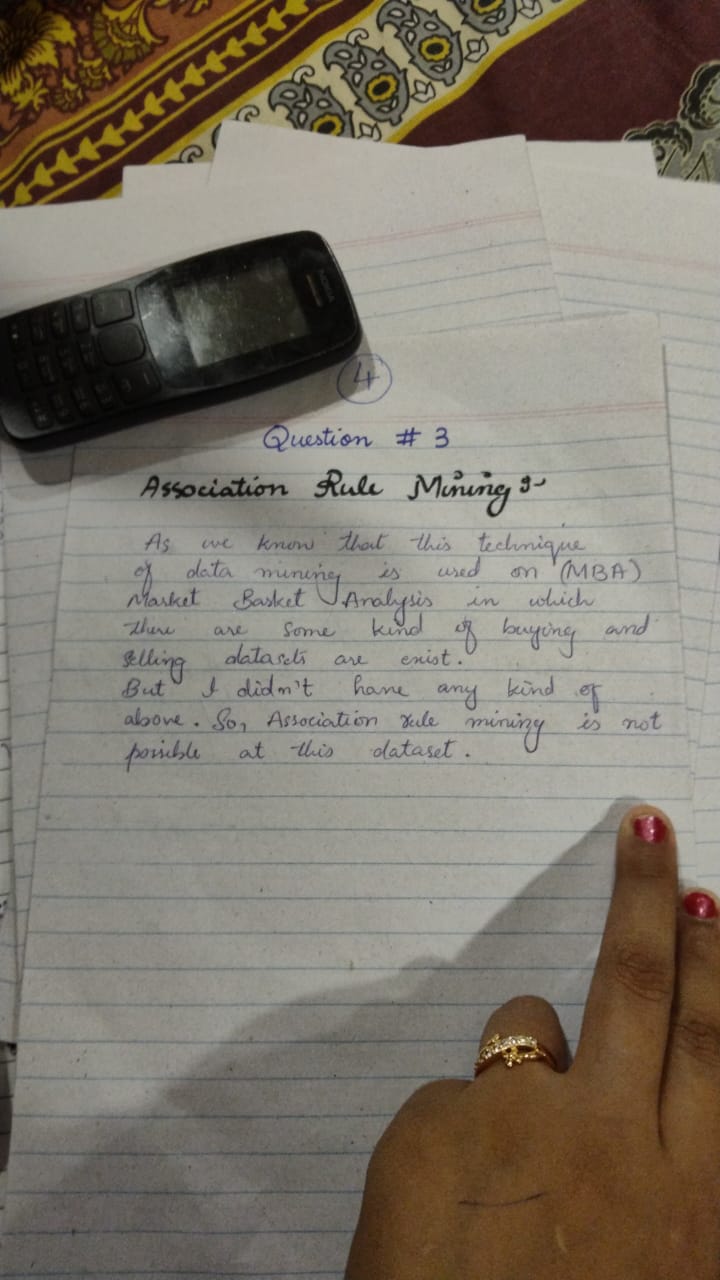 NOKIA
4
Question # 3
Association Rule Mining :-
As we know that this technique
of data mining is used on (MBA)
Market Basket Analysis in which
there are some kind of buying and
selling datasets are exist.
But I didn't have any kind of
above. So, Association rule mining is not
possible at this dataset.